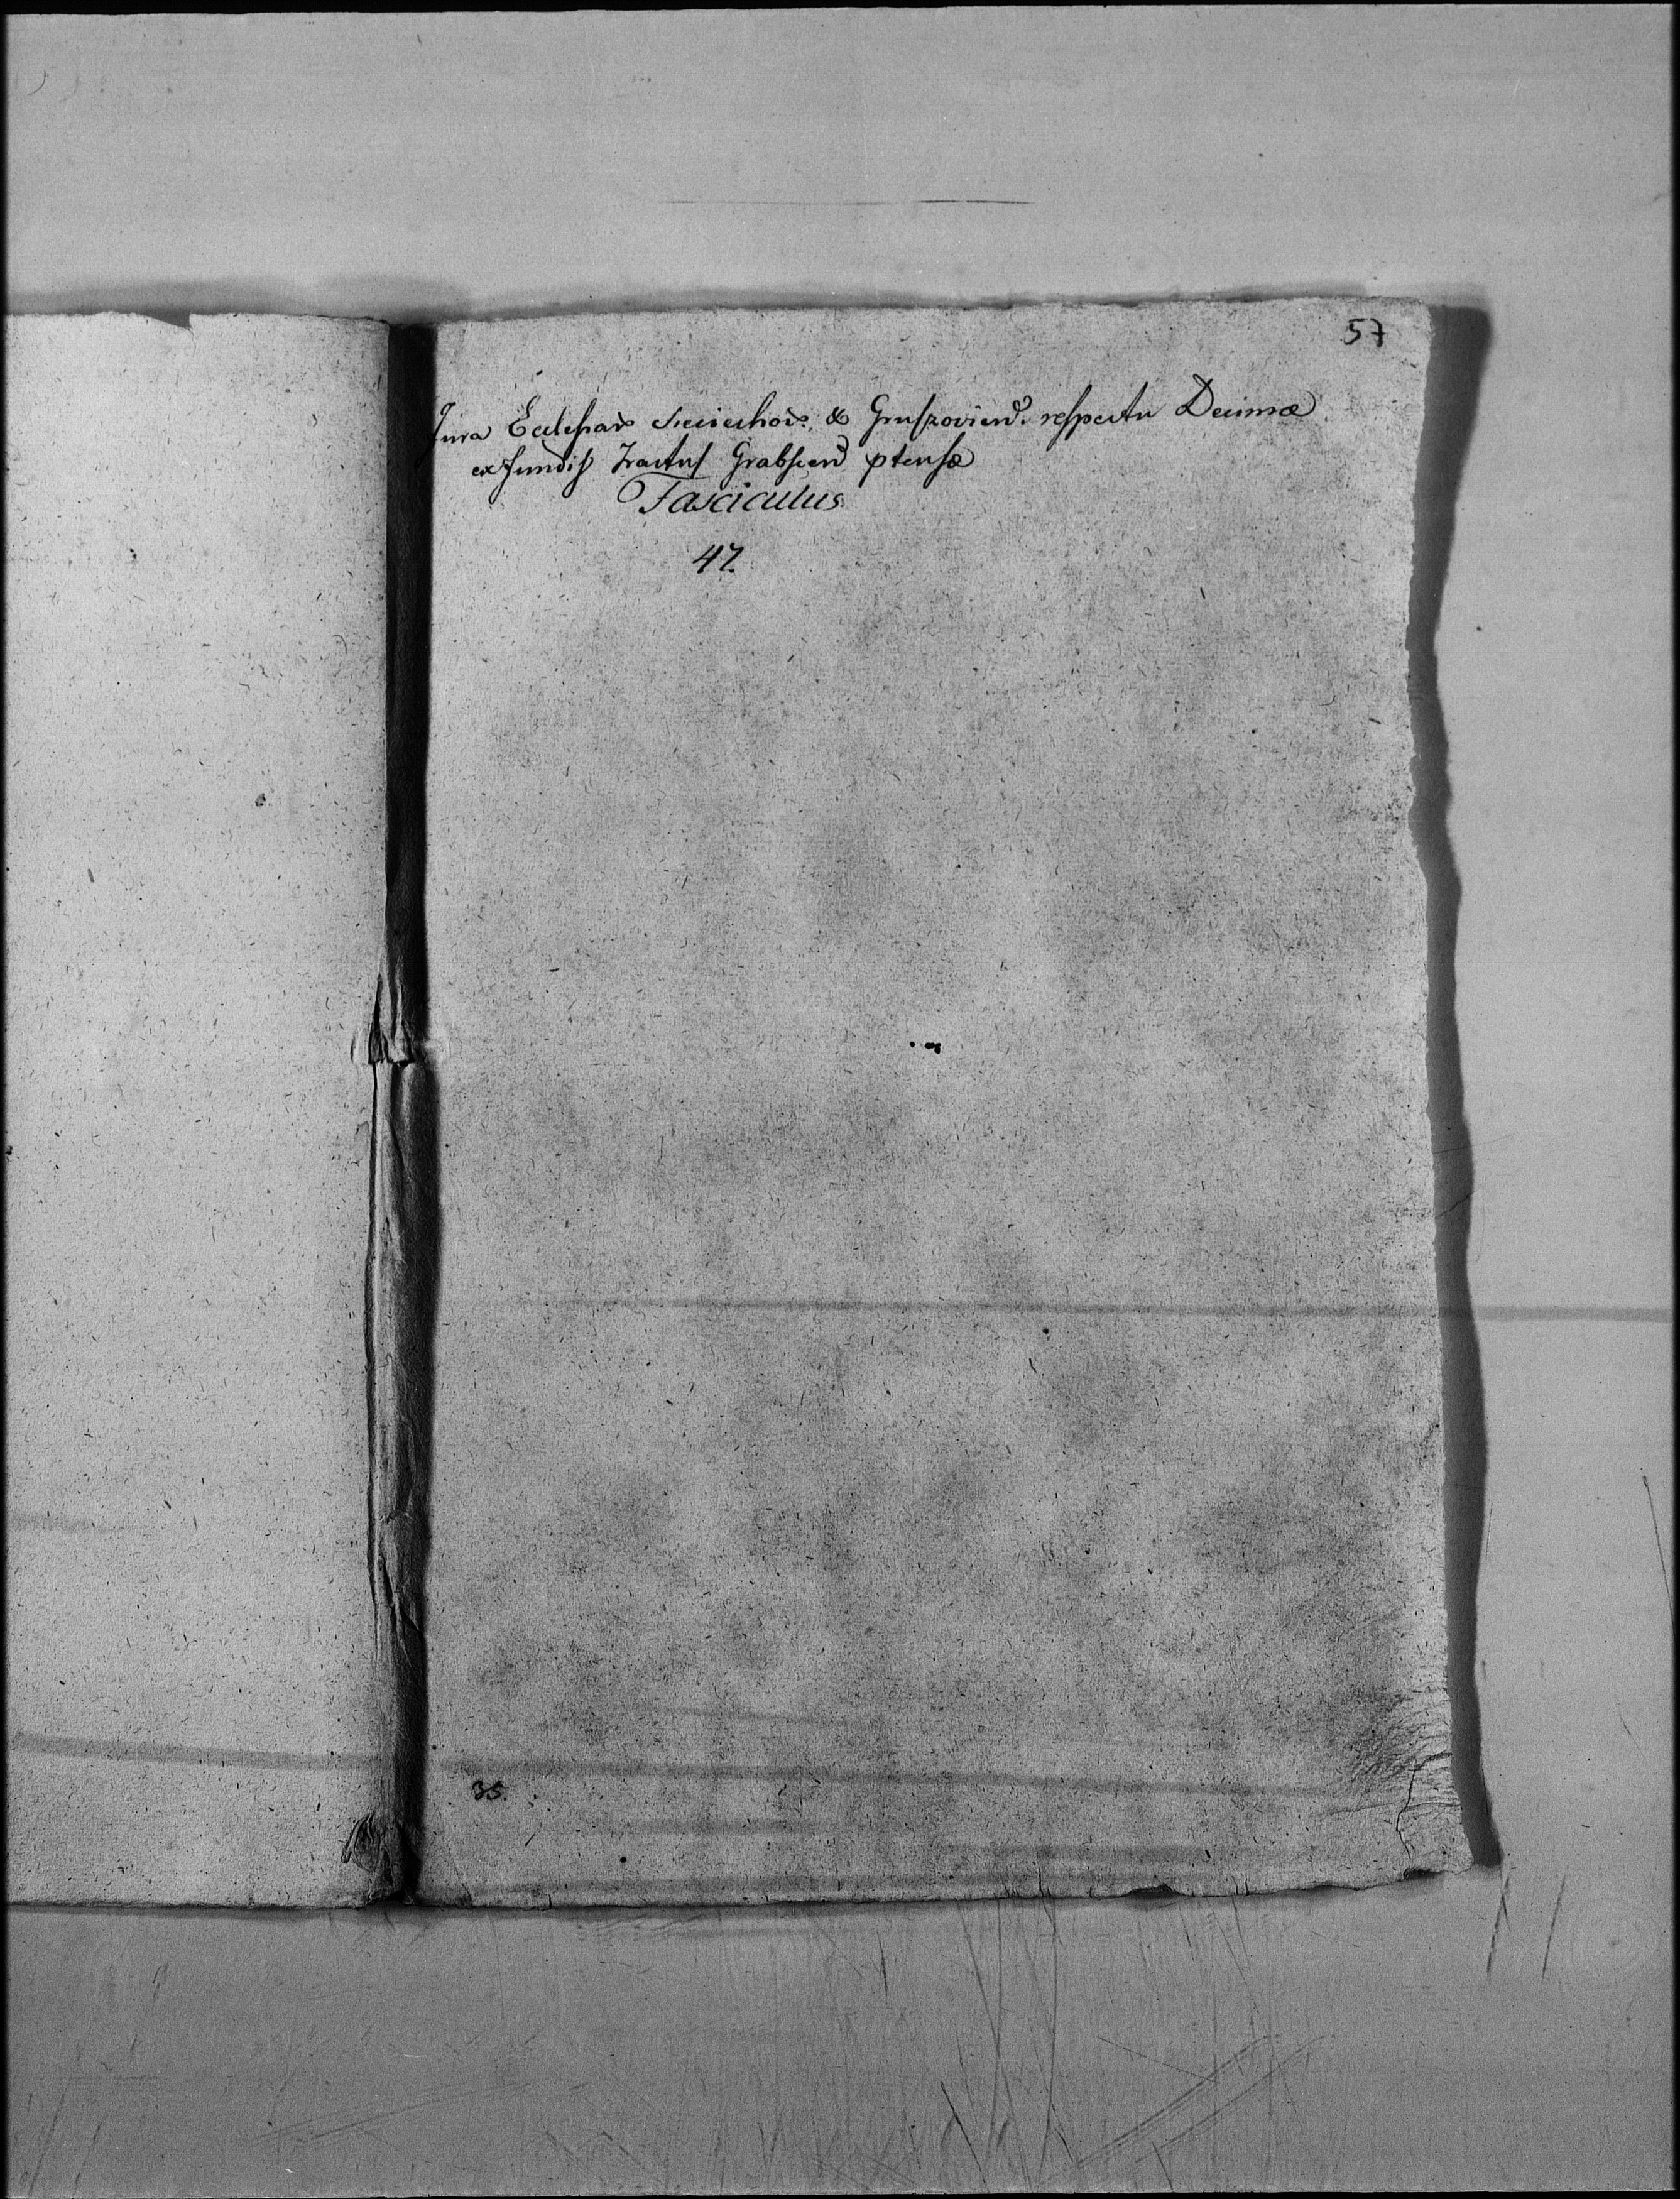 57
Jura Ecclesiar Sieciechov. & Gruszoviend. respectu Decimæ
ex fundis Tractus Grabsiend ptensæ
Fasciculus
47.
35.